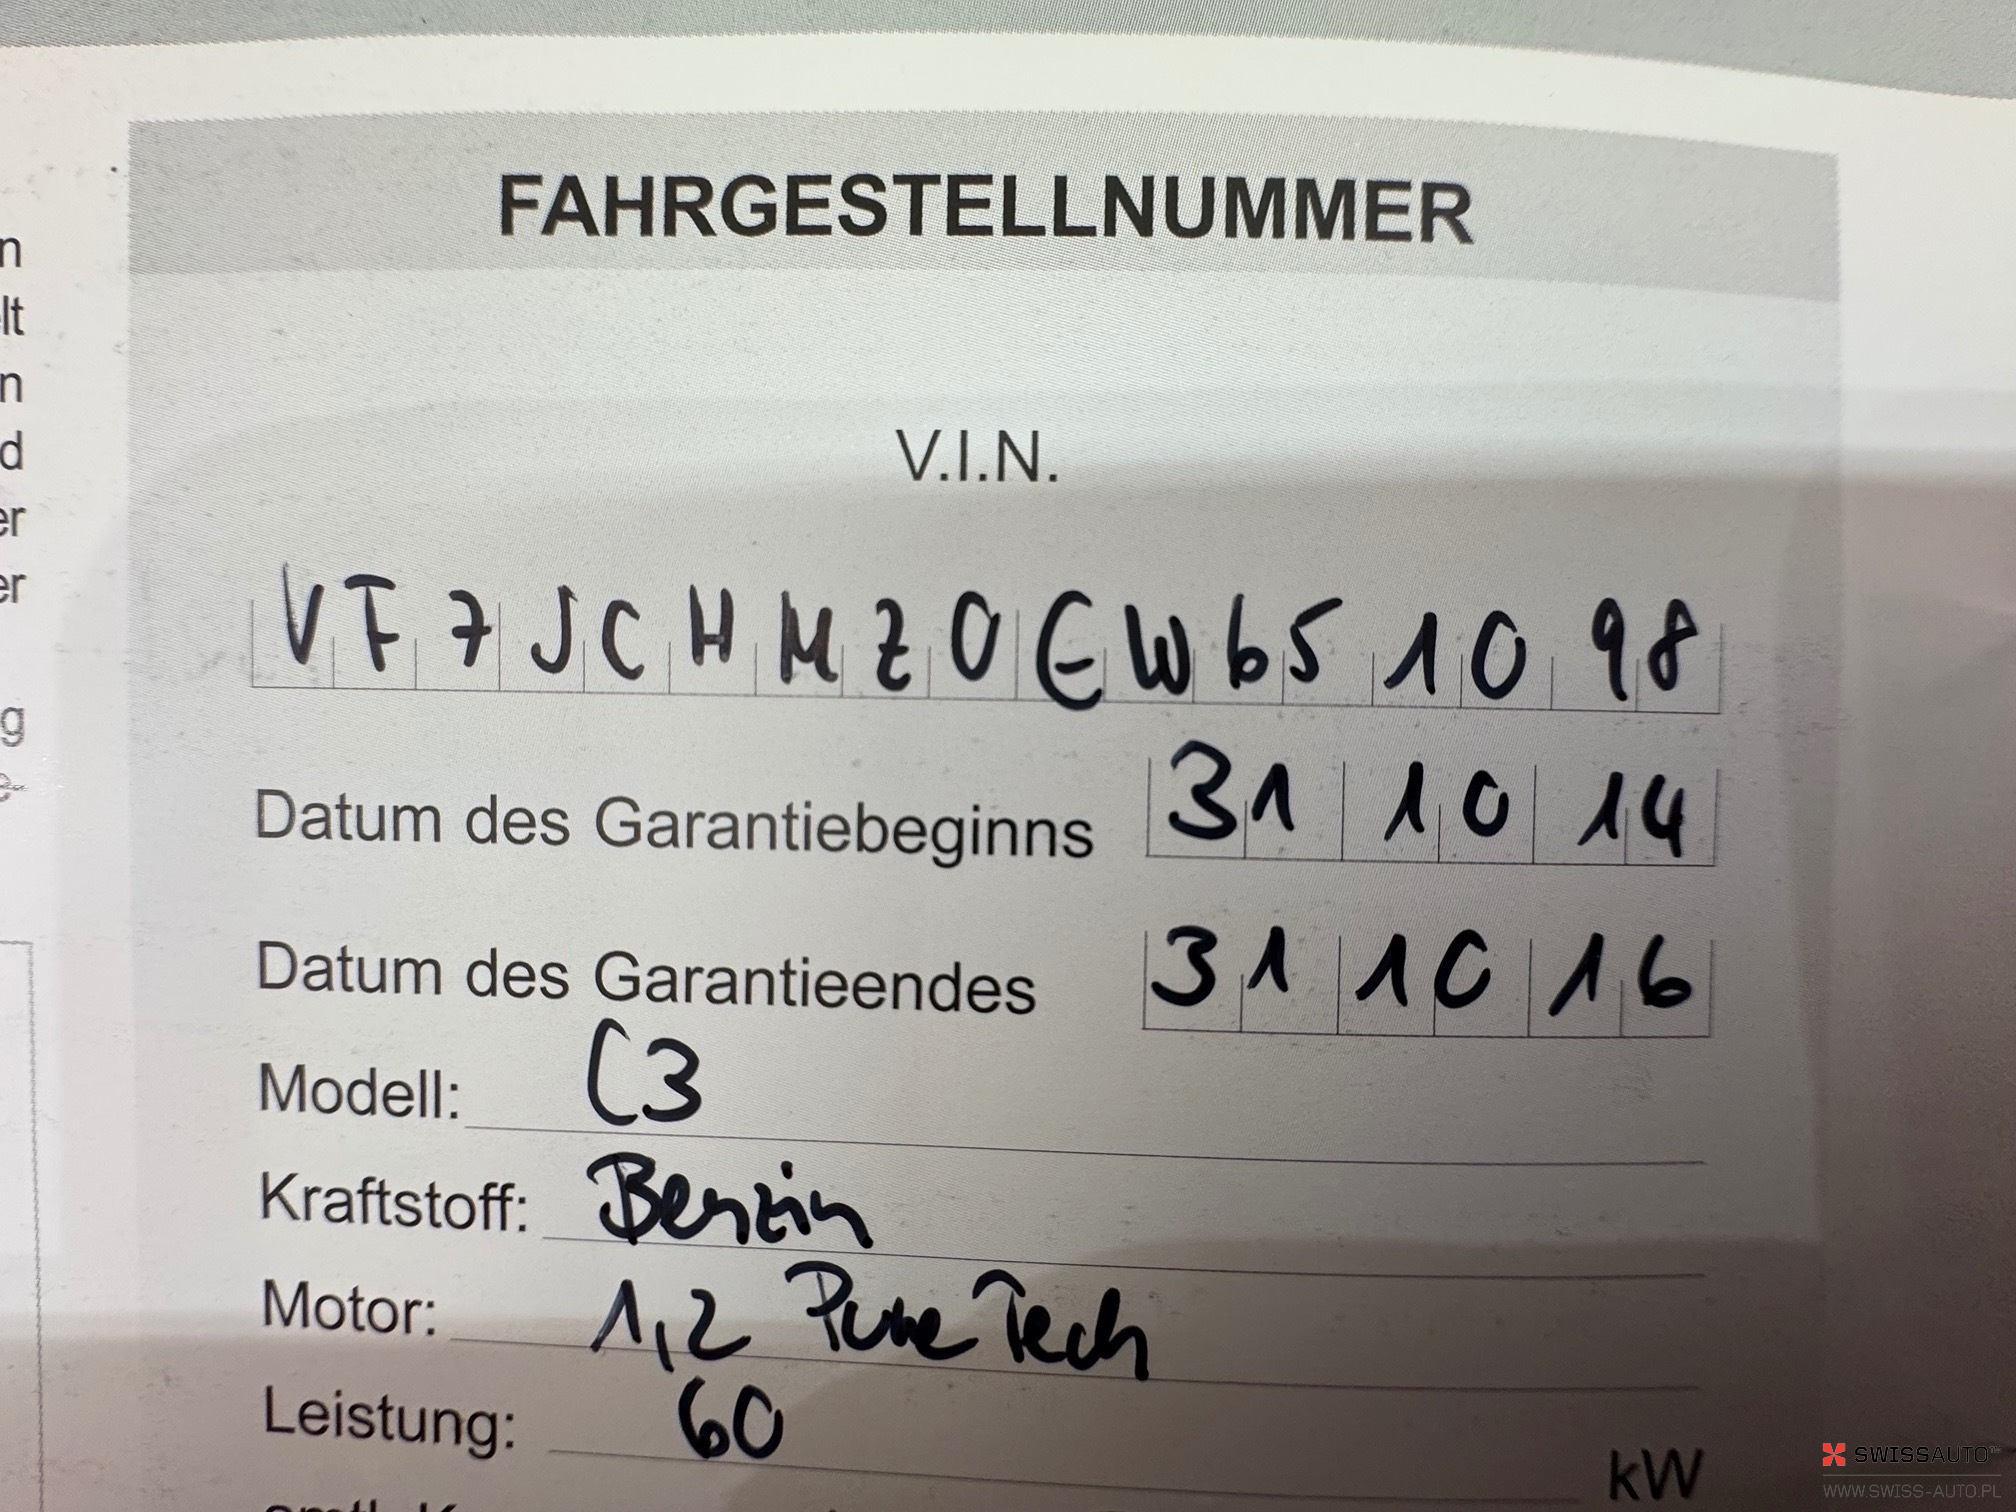 FAHRGESTELLNUMMER
V.I.N.
VF7JCHMZ0EW651098
n
lt
n
d
er
er
g
Datum des Garantiebeginns 31 10 14
Datum des Garantieendes 31 10 16
Modell: C3
Kraftstoff: Benzin
Motor: 1,2 PureTech
Leistung: 60 kW
SWISSAUTO
WWW.SWISS-AUTO.PL